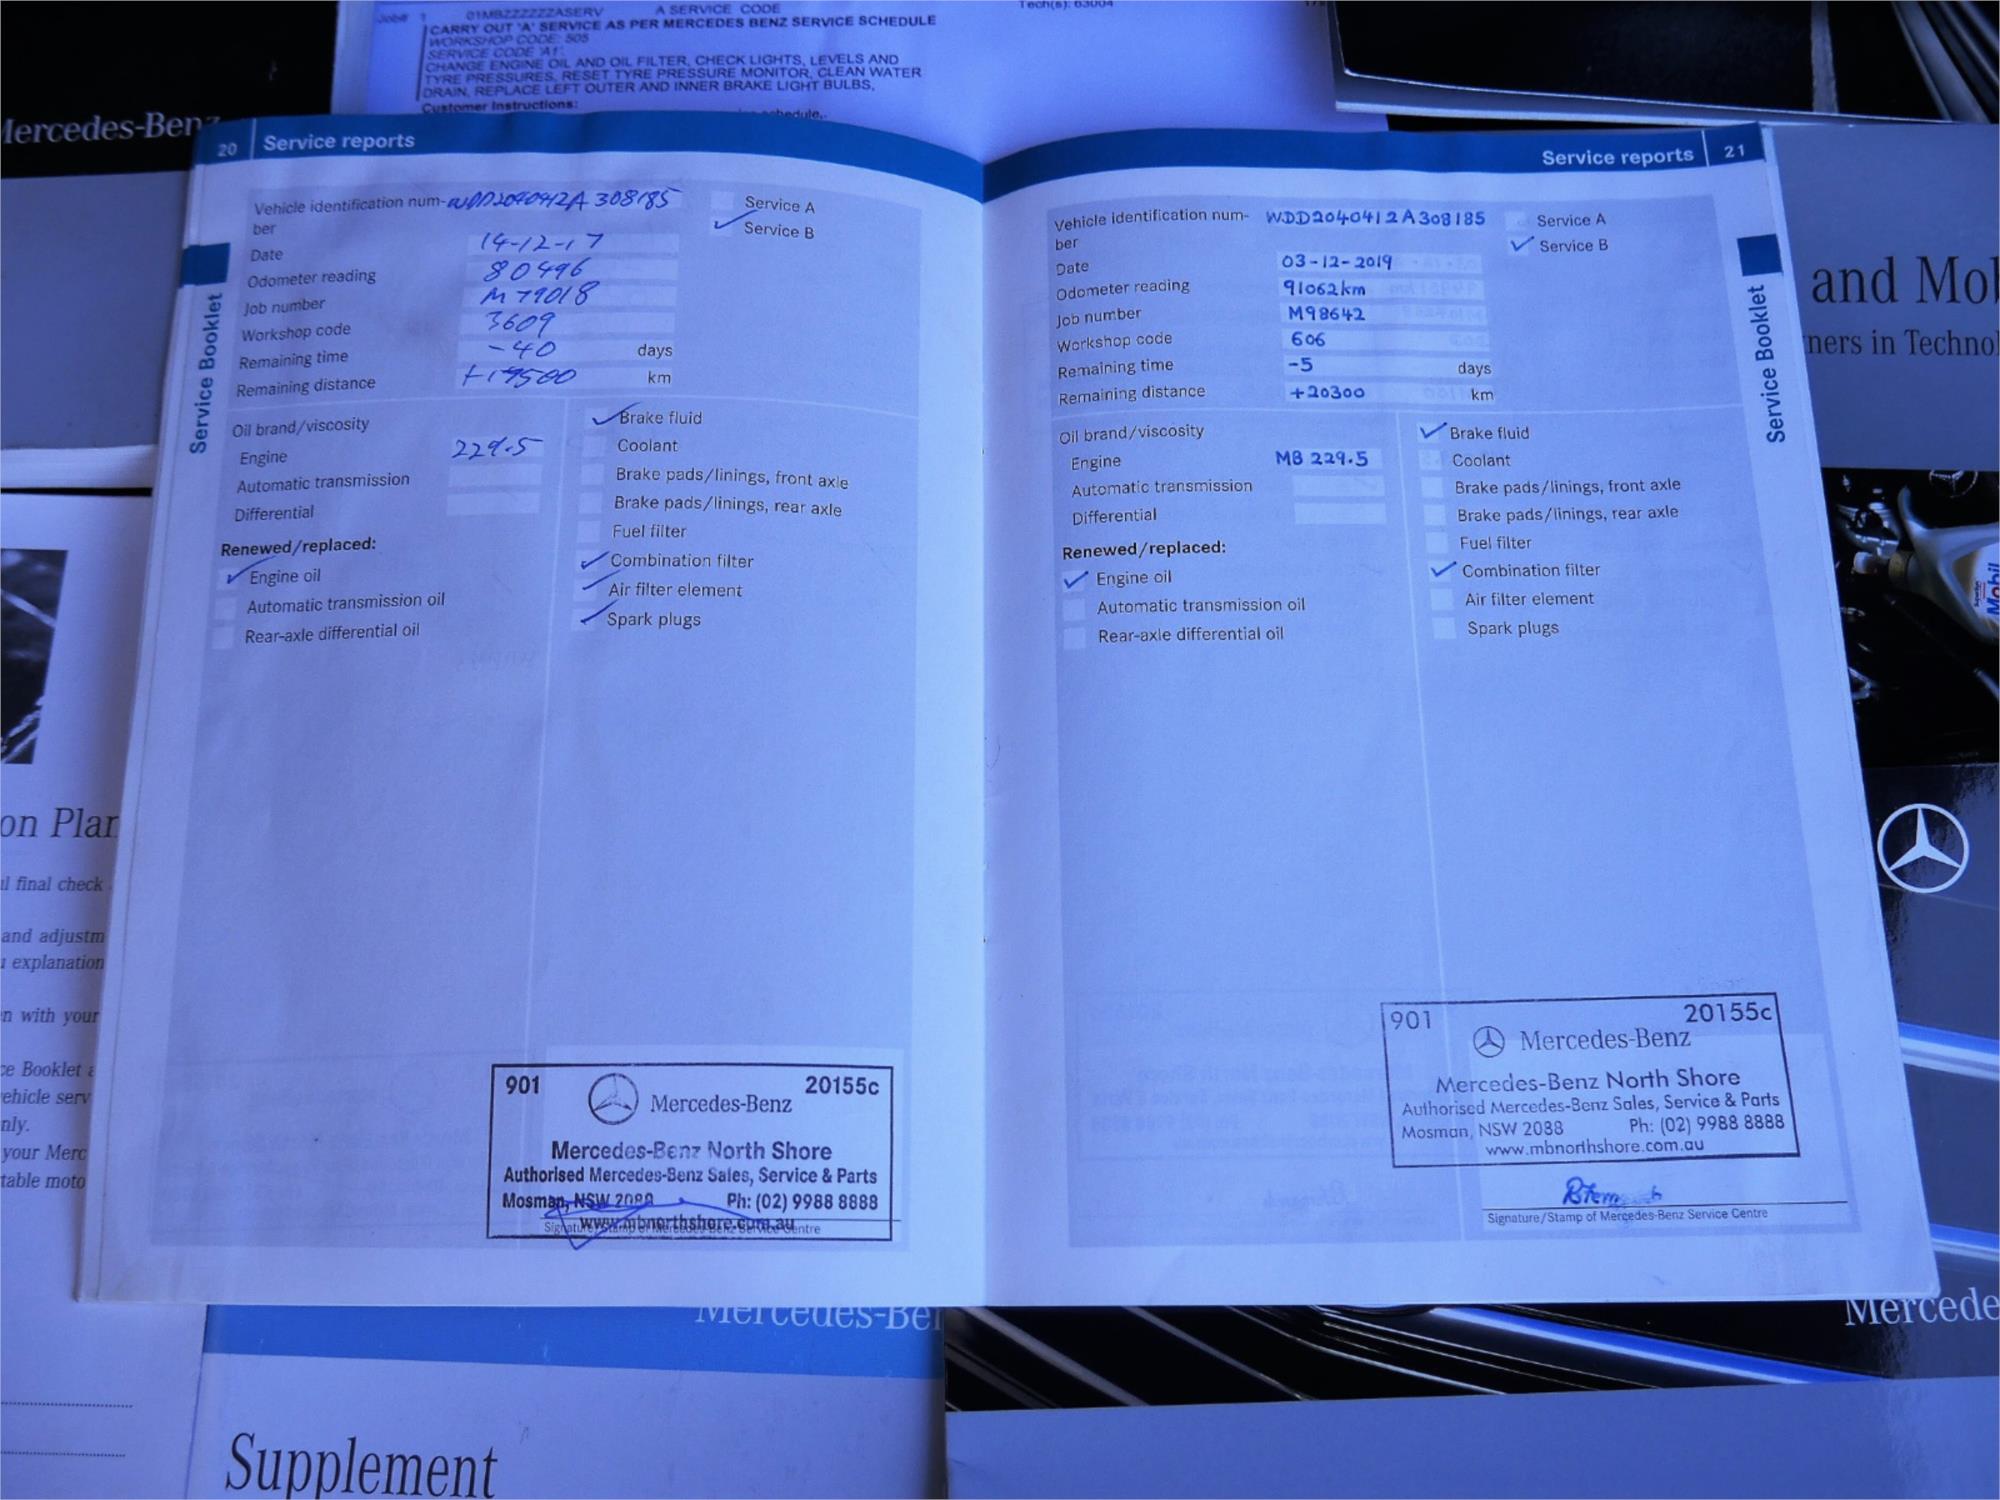 Job# 1 01MBZZZZZZASERV A SERVICE CODE
Tech(s): 63004
CARRY OUT 'A' SERVICE AS PER MERCEDES BENZ SERVICE SCHEDULE
WORKSHOP CODE: 505
SERVICE CODE 'A1'
CHANGE ENGINE OIL AND OIL FILTER, CHECK LIGHTS, LEVELS AND
TYRE PRESSURES, RESET TYRE PRESSURE MONITOR, CLEAN WATER
DRAIN, REPLACE LEFT OUTER AND INNER BRAKE LIGHT BULBS,
Customer Instructions:
Mercedes-Benz
20 Service reports
Vehicle identification num-
ber WDD2040412A308185
Service A
✓ Service B
Date 14-12-17
Odometer reading 80496
Job number M79018
Workshop code 3609
Remaining time -40 days
Remaining distance +19500 km
Oil brand/viscosity
Engine 229.5
Automatic transmission
Differential
Renewed/replaced:
✓ Engine oil
Automatic transmission oil
Rear-axle differential oil
✓ Brake fluid
Coolant
Brake pads/linings, front axle
Brake pads/linings, rear axle
Fuel filter
✓ Combination filter
✓ Air filter element
✓ Spark plugs
Service Booklet
901 20155c
Mercedes-Benz
Mercedes-Benz North Shore
Authorised Mercedes-Benz Sales, Service & Parts
Mosman, NSW 2088 Ph: (02) 9988 8888
www.mbnorthshore.com.au
Signature/Stamp of Mercedes-Benz Service Centre
Service reports 21
Vehicle identification num-
ber WDD2040412A308185
Service A
✓ Service B
Date 03-12-2019
Odometer reading 91062km
Job number M98642
Workshop code 606
Remaining time -5 days
Remaining distance +20300 km
Oil brand/viscosity
Engine MB 229.5
Automatic transmission
Differential
Renewed/replaced:
✓ Engine oil
Automatic transmission oil
Rear-axle differential oil
✓ Brake fluid
Coolant
Brake pads/linings, front axle
Brake pads/linings, rear axle
Fuel filter
✓ Combination filter
Air filter element
Spark plugs
Service Booklet
901 20155c
Mercedes-Benz
Mercedes-Benz North Shore
Authorised Mercedes-Benz Sales, Service & Parts
Mosman, NSW 2088 Ph: (02) 9988 8888
www.mbnorthshore.com.au
Signature/Stamp of Mercedes-Benz Service Centre
and Mo
ners in Techno
Mobil
on Plan
final check
and adjustm
explanation
n with your
ce Booklet
ehicle serv
nly.
your Merc
table moto
Mercedes-Be
Mercede
Supplement